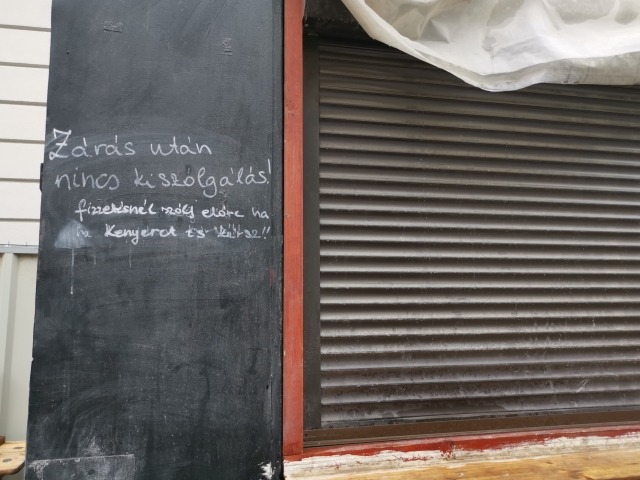 Zárás után
nincs kiszolgálás!
fizetésnél szólj előre ha
Kenyeret is kérsz!!